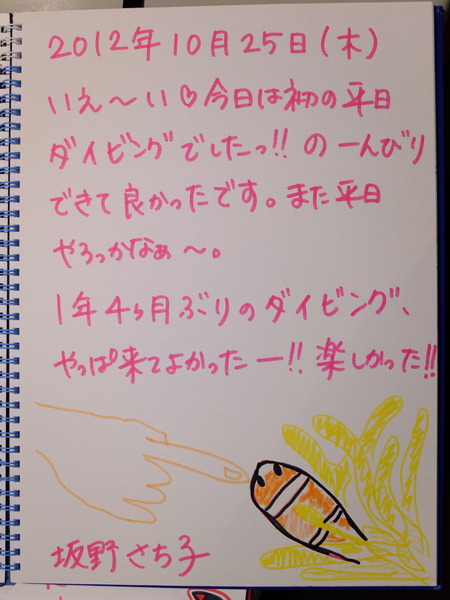 2012年10月25日(木)
いえ～い♡今日は初の平日
ダイビングでしたっ!! のーんびり
できて良かったです。また平日
やろっかなぁ～。
1年4ヶ月ぶりのダイビング、
やっぱ来てよかったー!! 楽しかった!!
坂野さち子